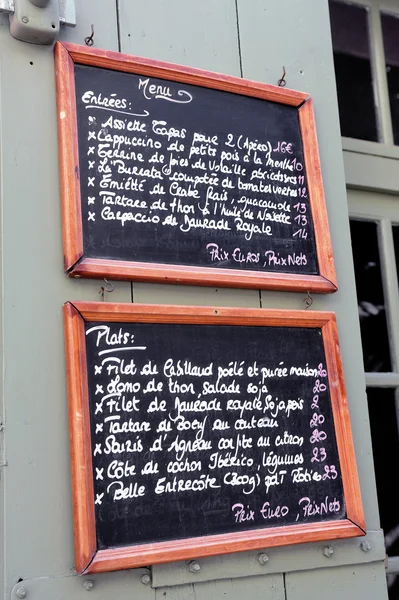 Menu
Entrées:
x Assiette Tapas pour 2 (Apéro) 16€
x Cappuccino de petits pois à la menthe 10
x Terrine de foies de Volaille abricotines 11
x La Burrata, compotée de tomates vertes 12
x Emietté de Crabe frais, guacamole 13
x Tartare de thon à l'huile de Noisette 13
x Carpaccio de Daurade Royale 14
Prix Euros, Prix Nets
Plats:
x Filet de Cabillaud poêlé et purée maison 20
x Lomo de thon, salade soja 20
x Filet de Daurade royale, Soja, pois 2
x Tartare de Boeuf au couteau 20
x Souris d'Agneau confite au citron 20
x Côte de cochon Ibérico, légumes 23
x Belle Entrecôte (300g) pdt Robties 23
Prix Euro, Prix Nets